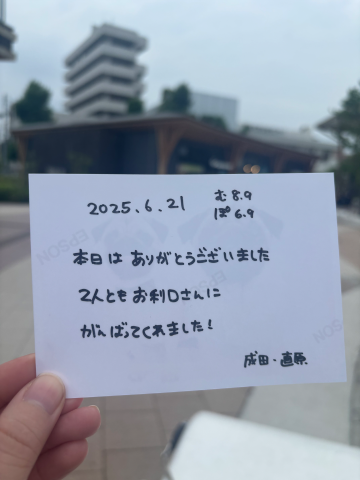 2025.6.21
む 8.9
ぽ 6.9
本日は ありがとうございました
2人とも お利口さんに
がんばってくれました!
成田・直原
EPSON
EPSON